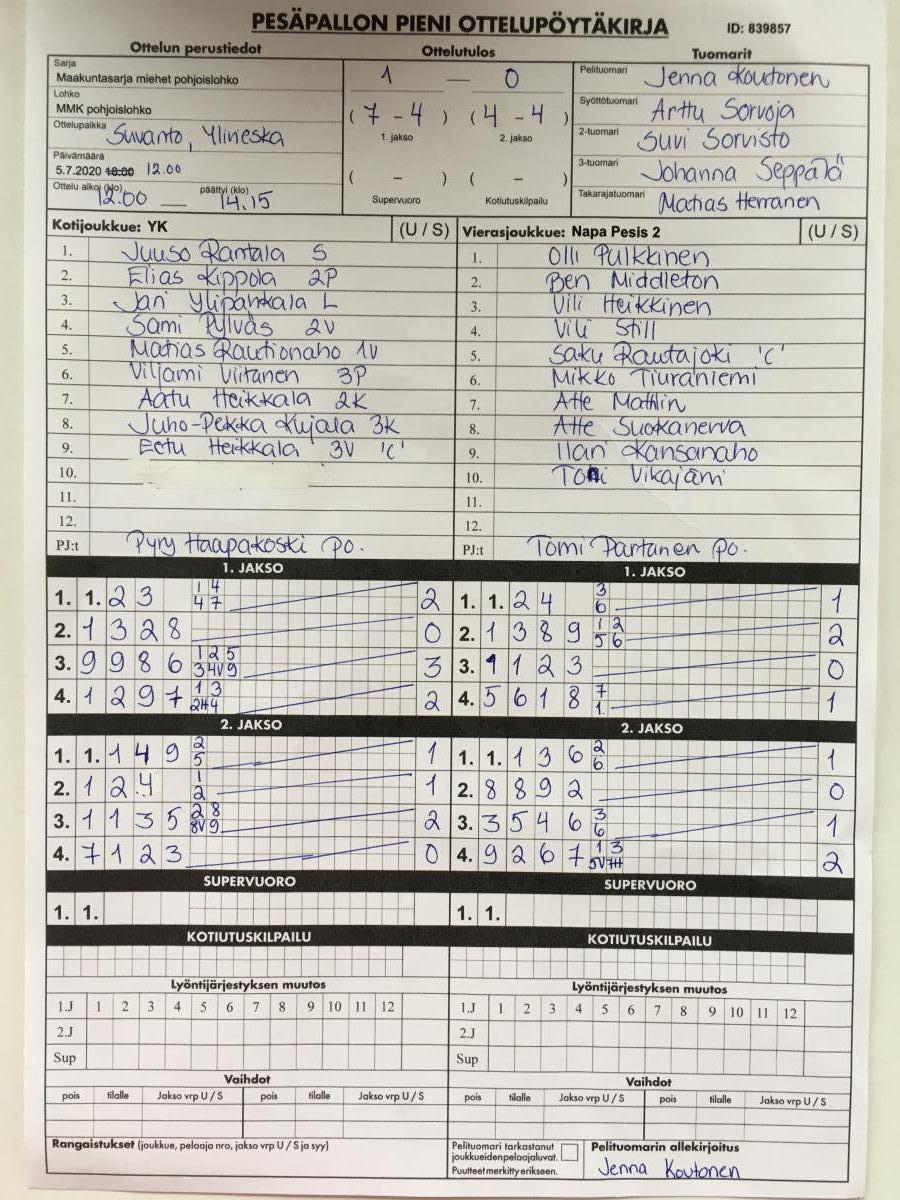 PESÄPALLON PIENI OTTELUPÖYTÄKIRJA
ID: 839857
Ottelun perustiedot
Ottelutulos
Tuomarit
Sarja
Maakuntasarja miehet pohjoislohko
Lohko
MMK pohjoislohko
Ottelupaikka Suvanto, Ylineska
Päivämäärä
5.7.2020 18:00 12.00
Ottelu alkoi (klo) 12.00 — päättyi (klo) 14.15
1 — 0
( 7 - 4 ) ( 4 - 4 )
1. jakso 2. jakso
( - ) ( - )
Supervuoro Kotiutuskilpailu
Pelituomari Jenna Koutonen
Syöttötuomari Arttu Sorvoja
2-tuomari Suvi Sorvisto
3-tuomari Johanna Seppälä
Takarajatuomari Matias Herranen
Kotijoukkue: YK (U / S)
1. Juuso Rantala S
2. Elias Kippola 2P
3. Jari Ylipahkala L
4. Sami Pylväs 2V
5. Matias Rautionaho 1V
6. Viljami Viitanen 3P
7. Aatu Heikkala 2K
8. Juho-Pekka Kujala 3K
9. Eetu Heikkala 3V 'C'
10.
11.
12.
PJ:t Pyry Haapakoski po.
Vierasjoukkue: Napa Pesis 2 (U / S)
1. Olli Pulkkinen
2. Ben Middleton
3. Vili Heikkinen
4. Vili Still
5. Saku Rautajoki 'C'
6. Mikko Tiuraniemi
7. Atte Mathlin
8. Atte Suokanerva
9. Ilari Kansanaho
10. Toni Vikajärvi
11.
12.
PJ:t Tomi Partanen po.
1. JAKSO
1. 1. 2 3 1 4 2
4 7
2. 1 3 2 8 0
3. 9 9 8 6 1 2 5 3
3 4V 9
4. 1 2 9 7 1 3 2
2H 4
1. JAKSO
1. 1. 2 4 3 1
6
2. 1 3 8 9 1 2 2
5 6
3. 1 1 2 3 0
4. 5 6 1 8 7 1
1
2. JAKSO
1. 1. 1 4 9 2 1
5
2. 1 2 4 1 1
2
3. 1 1 3 5 2 8 2
8V 9
4. 7 1 2 3 0
2. JAKSO
1. 1. 1 3 6 2 1
6
2. 8 8 9 2 0
3. 3 5 4 6 3 1
6
4. 9 2 6 7 1 3 2
5V 7H
SUPERVUORO
1. 1.
SUPERVUORO
1. 1.
KOTIUTUSKILPAILU
KOTIUTUSKILPAILU
Lyöntijärjestyksen muutos
1.J 1 2 3 4 5 6 7 8 9 10 11 12
2.J
Sup
Lyöntijärjestyksen muutos
1.J 1 2 3 4 5 6 7 8 9 10 11 12
2.J
Sup
Vaihdot
pois tilalle Jakso vrp U / S pois tilalle Jakso vrp U / S
Vaihdot
pois tilalle Jakso vrp U / S pois tilalle Jakso vrp U / S
Rangaistukset (joukkue, pelaaja nro, jakso vrp U / S ja syy)
Pelituomari tarkastanut
joukkueidenpelaajaluvat.
Puutteet merkitty erikseen.
Pelituomarin allekirjoitus
Jenna Koutonen